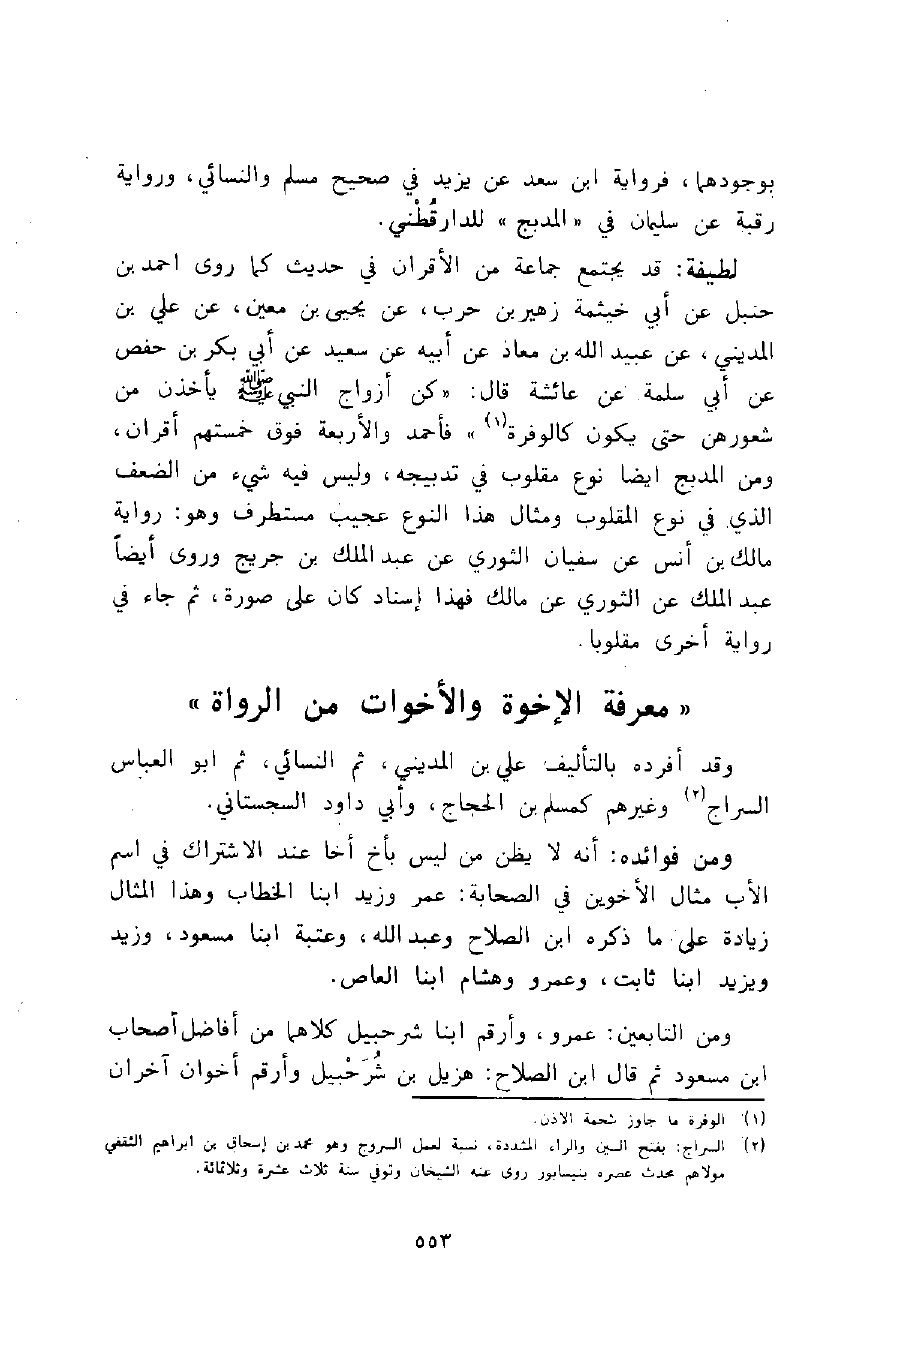 بوجودهما، فرواية ابن سعد عن يزيد في صحيح مسلم والنسائي، ورواية
رقبة عن سليمان في «المدبج» للدارقُطْني.
لطيفة: قد يجتمع جماعة من الأقران في حديث كما روى احمد بن
حنبل عن أبي خيثمة زهير بن حرب، عن يحيى بن معين، عن علي بن
المديني، عن عبيد الله بن معاذ عن أبيه عن سعيد عن أبي بكر بن حفص
عن أبي سلمة عن عائشة قال: «كن أزواج النبي ﷺ يأخذن من
شعورهن حتى يكون كالوفرة(١)» فأحمد والأربعة فوق خمستهم أقران،
ومن المدبج ايضا نوع مقلوب في تدبيجه، وليس فيه شيء من الضعف
الذي في نوع المقلوب ومثال هذا النوع عجيب مستطرف وهو: رواية
مالك بن أنس عن سفيان الثوري عن عبد الملك بن جريج وروى أيضاً
عبد الملك عن الثوري عن مالك فهذا إسناد كان على صورة، ثم جاء في
رواية أخرى مقلوبا.
«معرفة الإخوة والأخوات من الرواة»
وقد أفرده بالتأليف علي بن المديني، ثم النسائي، ثم ابو العباس
السراج(٢) وغيرهم كمسلم بن الحجاج، وأبي داود السجستاني.
ومن فوائده: أنه لا يظن من ليس بأخ أخا عند الاشتراك في اسم
الأب مثال الأخوين في الصحابة: عمر وزيد ابنا الخطاب وهذا المثال
زيادة على ما ذكره ابن الصلاح وعبد الله، وعتبة ابنا مسعود، وزيد
ويزيد ابنا ثابت، وعمرو وهشام ابنا العاص.
ومن التابعين: عمرو، وأرقم ابنا شرحبيل كلاهما من أفاضل أصحاب
ابن مسعود ثم قال ابن الصلاح: هزيل بن شُرَحْبيل وأرقم أخوان آخران
(١) الوفرة ما جاوز شحمة الاذن.
(٢) السراج: بفتح السين والراء المشددة، نسبة لعمل السروج وهو محمد بن إسحاق بن ابراهيم الثقفي
مولاهم محدث عصره بنيسابور روى عنه الشيخان وتوفي سنة ثلاث عشرة وثلاثمائة.
٥٥٣